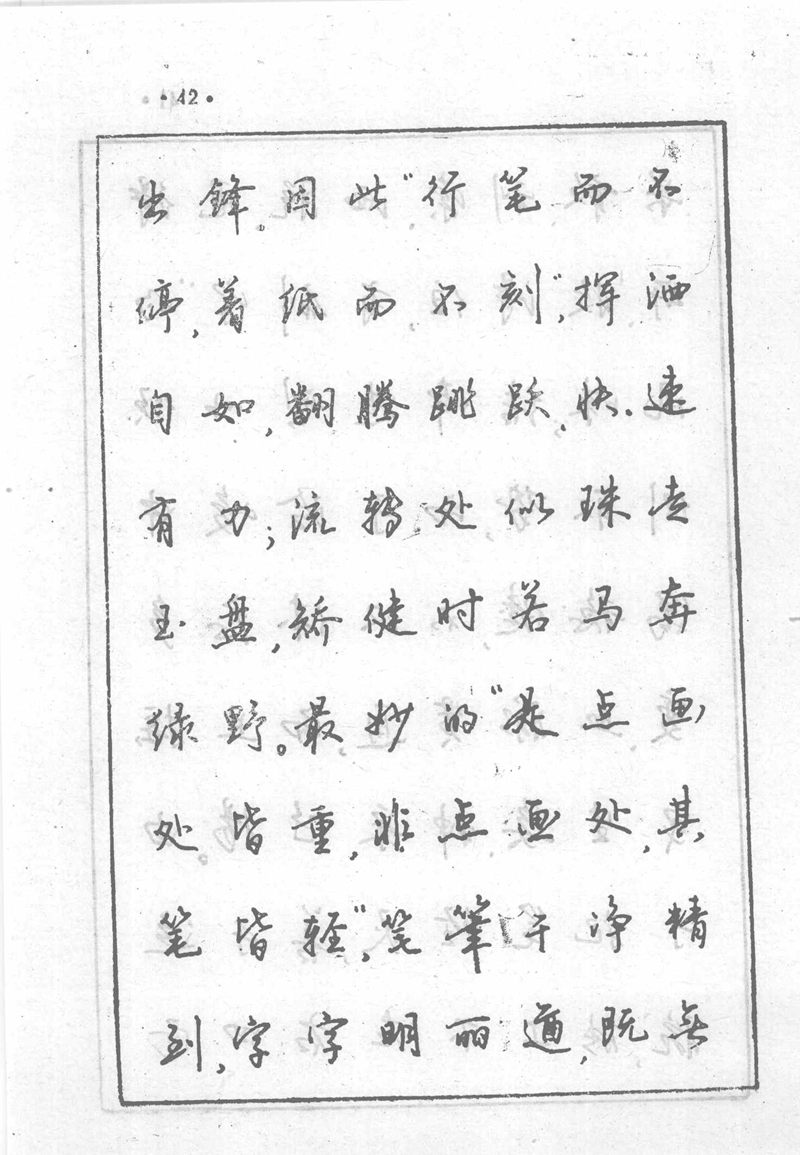 ·42·
出锋。因此“行笔而不
停,着纸而不刻”,挥洒
自如,翻腾跳跃,快速
有力;流转处似珠走
玉盘,矫健时若马奔
绿野。最妙的“是点画
处。皆重,非点画处,其
笔皆轻”,笔筆干净精
到,字字明丽遒,既无